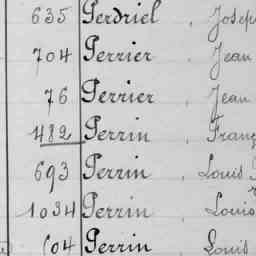 635 Perdriel, Josep
704 Perrier, Jean
76 Perrier, Jean
482 Perrin, Franç
693 Perrin, Louis
1034 Perrin, Louis
604 Perrin, Louis